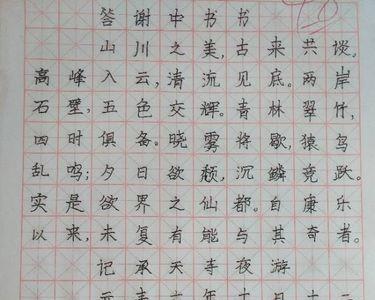 答谢中书书
山川之美,古来共谈。
高峰入云,清流见底。两岸
石壁,五色交辉。青林翠竹,
四时俱备。晓雾将歇,猿鸟
乱鸣;夕日欲颓,沉鳞竞跃。
实是欲界之仙都。自康乐
以来,未复有能与其奇者。
记承天寺夜游